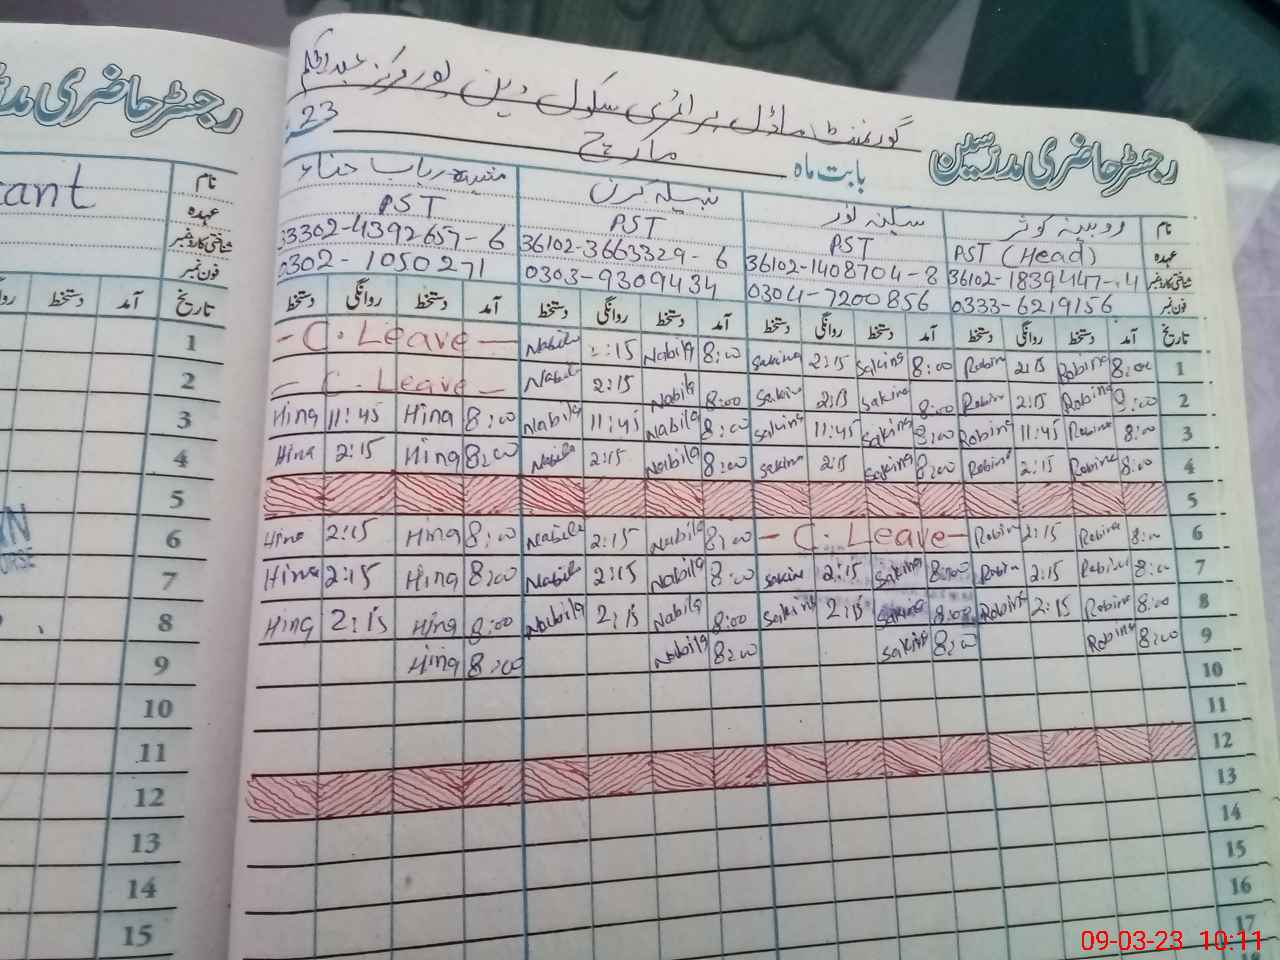 رجسٹر حاضری مدرسین
گورنمنٹ ماڈل پرائمری سکول دین پور مرکز عبدالحکیم
بابت ماہ مارچ 23
نام روبینہ کوثر سکینہ نور نبیلہ کرن منیبہ رباب حناء
عہدہ PST (Head) PST PST PST
شناختی کارڈ نمبر 36102-1839447-4 36102-1408704-8 36102-3663329-6 33302-4392657-6
فون نمبر 0333-6219156 0304-7200856 0303-9309434 0302-1050271
تاریخ آمد دستخط روانگی دستخط آمد دستخط روانگی دستخط آمد دستخط روانگی دستخط آمد دستخط روانگی دستخط
1 8:00 Robina 2:15 Robin 8:00 Sakina 2:15 Sakina 8:00 Nabila 2:15 Nabila - C. Leave -
2 8:00 Robina 2:15 Robin 8:00 Sakina 2:15 Sakin 8:00 Nabila 2:15 Nabila - C. Leave -
3 8:00 Robina 11:45 Robina 8:00 Sakina 11:45 Sakina 8:00 Nabila 11:45 Nabila 8:00 Hina 11:45 Hina
4 8:00 Robina 2:15 Robina 8:00 Sakina 2:15 Sakina 8:00 Nabila 2:15 Nabila 8:00 Hina 2:15 Hina
5
6 8:00 Robina 2:15 Robin - C. Leave - 8:00 Nabila 2:15 Nabila 8:00 Hina 2:15 Hina
7 8:00 Robina 2:15 Robin 8:00 Sakina 2:15 Sakin 8:00 Nabila 2:15 Nabila 8:00 Hina 2:15 Hina
8 8:00 Robina 2:15 Robina 8:00 Sakina 2:15 Sakina 8:00 Nabila 2:15 Nabila 8:00 Hina 2:15 Hina
9 8:00 Robina 8:00 Sakina 8:00 Nabila 8:00 Hina
10
11
12
13
14
15
16
17
رجسٹر حاضری
نام
عہدہ
شناختی کارڈ نمبر
فون نمبر
تاریخ آمد دستخط
1
2
3
4
5
6
7
8
9
10
11
12
13
14
15
09-03-23 10:11